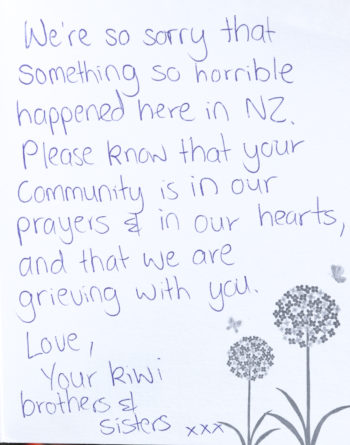 We're so sorry that
something so horrible
happened here in NZ.
Please know that your
Community is in our
prayers & in our hearts,
and that we are
grieving with you.
Love,
Your kiwi
brothers &
sisters xxx